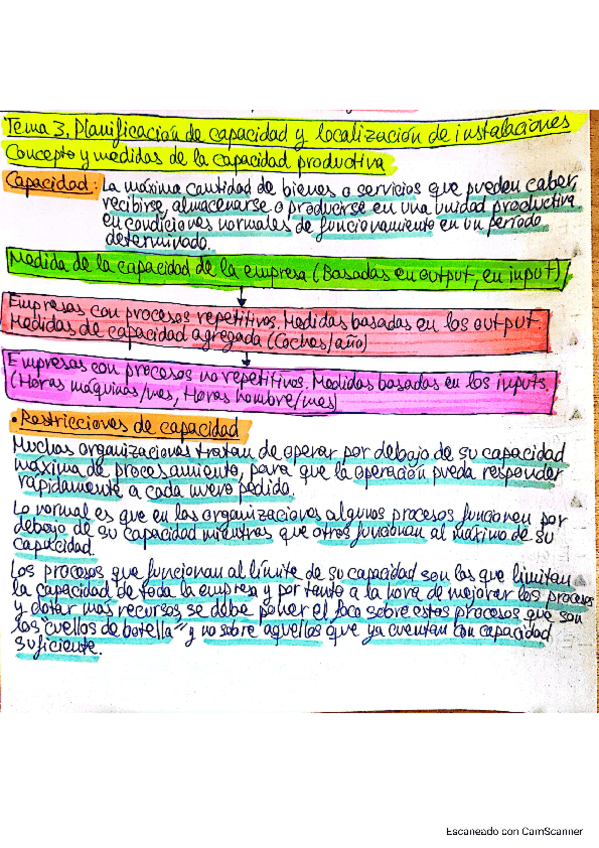 Tema 3. Planificación de capacidad y localización de instalaciones
Concepto y medidas de la capacidad productiva
Capacidad: La máxima cantidad de bienes o servicios que pueden caber,
recibirse, almacenarse o producirse en una unidad productiva
en condiciones normales de funcionamiento en un período
determinado.
Medida de la capacidad de la empresa (Basadas en output, en input)
Empresas con procesos repetitivos. Medidas basadas en los output.
Medidas de capacidad agregada (Coches/año)
Empresas con procesos no repetitivos. Medidas basadas en los inputs.
(Horas máquinas/mes, Horas hombre/mes)
• Restricciones de capacidad
Muchas organizaciones tratan de operar por debajo de su capacidad
máxima de procesamiento, para que la operación pueda responder
rápidamente a cada nuevo pedido.
Lo normal es que en las organizaciones algunos procesos funcionen por
debajo de su capacidad mientras que otros funcionan al máximo de su
capacidad.
Los procesos que funcionan al límite de su capacidad son las que limitan
la capacidad de toda la empresa y por tanto a la hora de mejorar los procesos
y dotar más recursos, se debe poner el foco sobre estos procesos que son
los "cuellos de botella" y no sobre aquellos que ya cuentan con capacidad
suficiente.
Escaneado con CamScanner